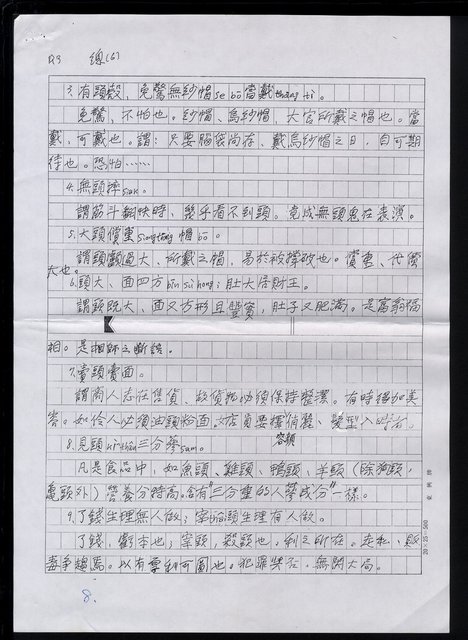 總(6)
3.有頭殼,免驚無紗帽se bō當戴thang tì。
免驚、不怕也。紗帽、烏紗帽、大官所戴之帽也。當
戴、可戴也。謂:只要腦袋尚存、戴烏紗帽之日,自可期
待也。恐怕……
4.無頭摔siak。
謂筋斗翻快時、幾乎看不到頭。竟成無頭鬼在表演。
5.大頭償重siong tāng帽bō。
謂頭顱過大、所戴之帽、易於被撐破也。償重、
大也。
6.頭大、面四方bīn sì hong;肚大居財王。
謂頭既大、面又方形且豐實,肚子又肥滿。是富翁福
相。是相師之斷語。
7.賣頭賣面。
謂商人志在售貨、故貨就必須保持整潔。有時須加美
容。如伶人必須油頭粉面。女店員要擇俏麗、髮型入時者。
容顏
8.見頭kì thâu三分參sam。
凡是食品中,如魚頭、雞頭、鴨頭、羊頭(除狗頭,
龜頭外)營養分特高。含有"三分重的人參成分"一樣。
9.了錢生理無人做;宰頭生理有人做。
了錢、虧本也;宰頭,殺頭也。利之所在。走私、販
毒爭趨焉。以有重利可圖也。犯罪與否、無關大局。
8.
20×25=500